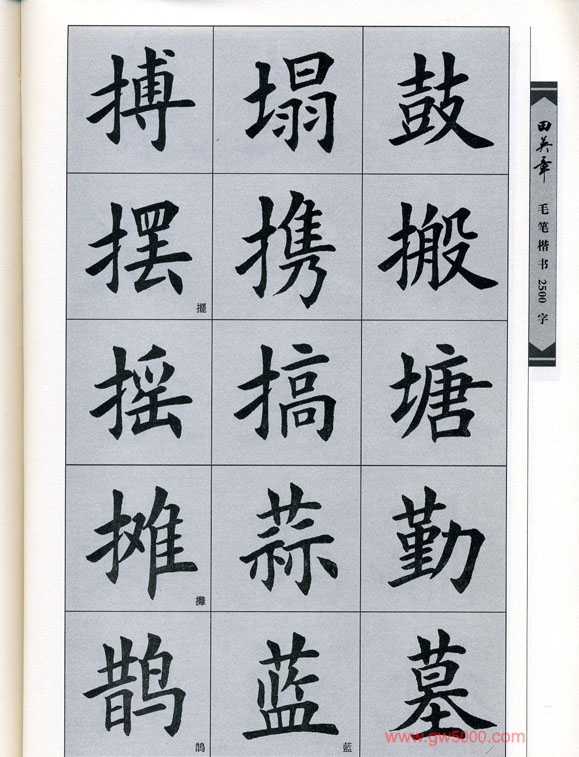 搏 塌 鼓
摆 擺 携 搬
摇 搞 塘
摊 攤 蒜 勤
鹊 鵲 蓝 藍 墓
田英章 毛笔楷书2500字
www.gw5000.com